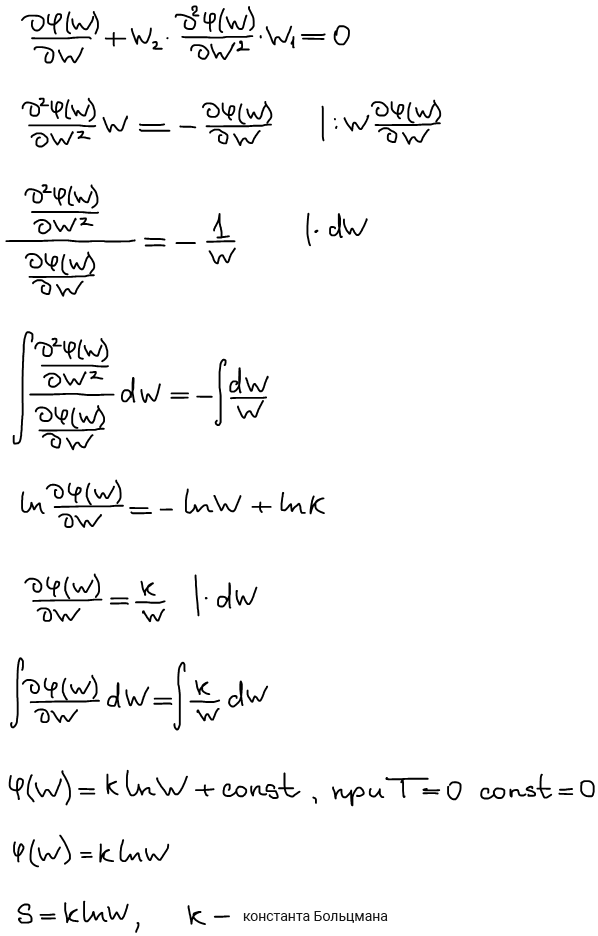 ∂φ(w)/∂w + w₂ · ∂²φ(w)/∂w² · w₁ = 0
∂²φ(w)/∂w² w = − ∂φ(w)/∂w |: w ∂φ(w)/∂w
(∂²φ(w)/∂w²)/(∂φ(w)/∂w) = − 1/w |· dw
∫ (∂²φ(w)/∂w²)/(∂φ(w)/∂w) dw = − ∫ dw/w
ln ∂φ(w)/∂w = − lnw + lnк
∂φ(w)/∂w = к/w |· dw
∫ ∂φ(w)/∂w dw = ∫ к/w dw
φ(w) = к lnw + const, при T = 0 const = 0
φ(w) = к lnw
S = к lnw, к − константа Больцмана